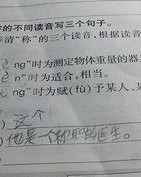 的不同读音写三个句子。
清“称”的三个读音,根据读音
ng”时为测定物体重量的器
n”时为适合,相当。
ng”时为赋(fù)予某人、某
这个
他是一个称职的医生。